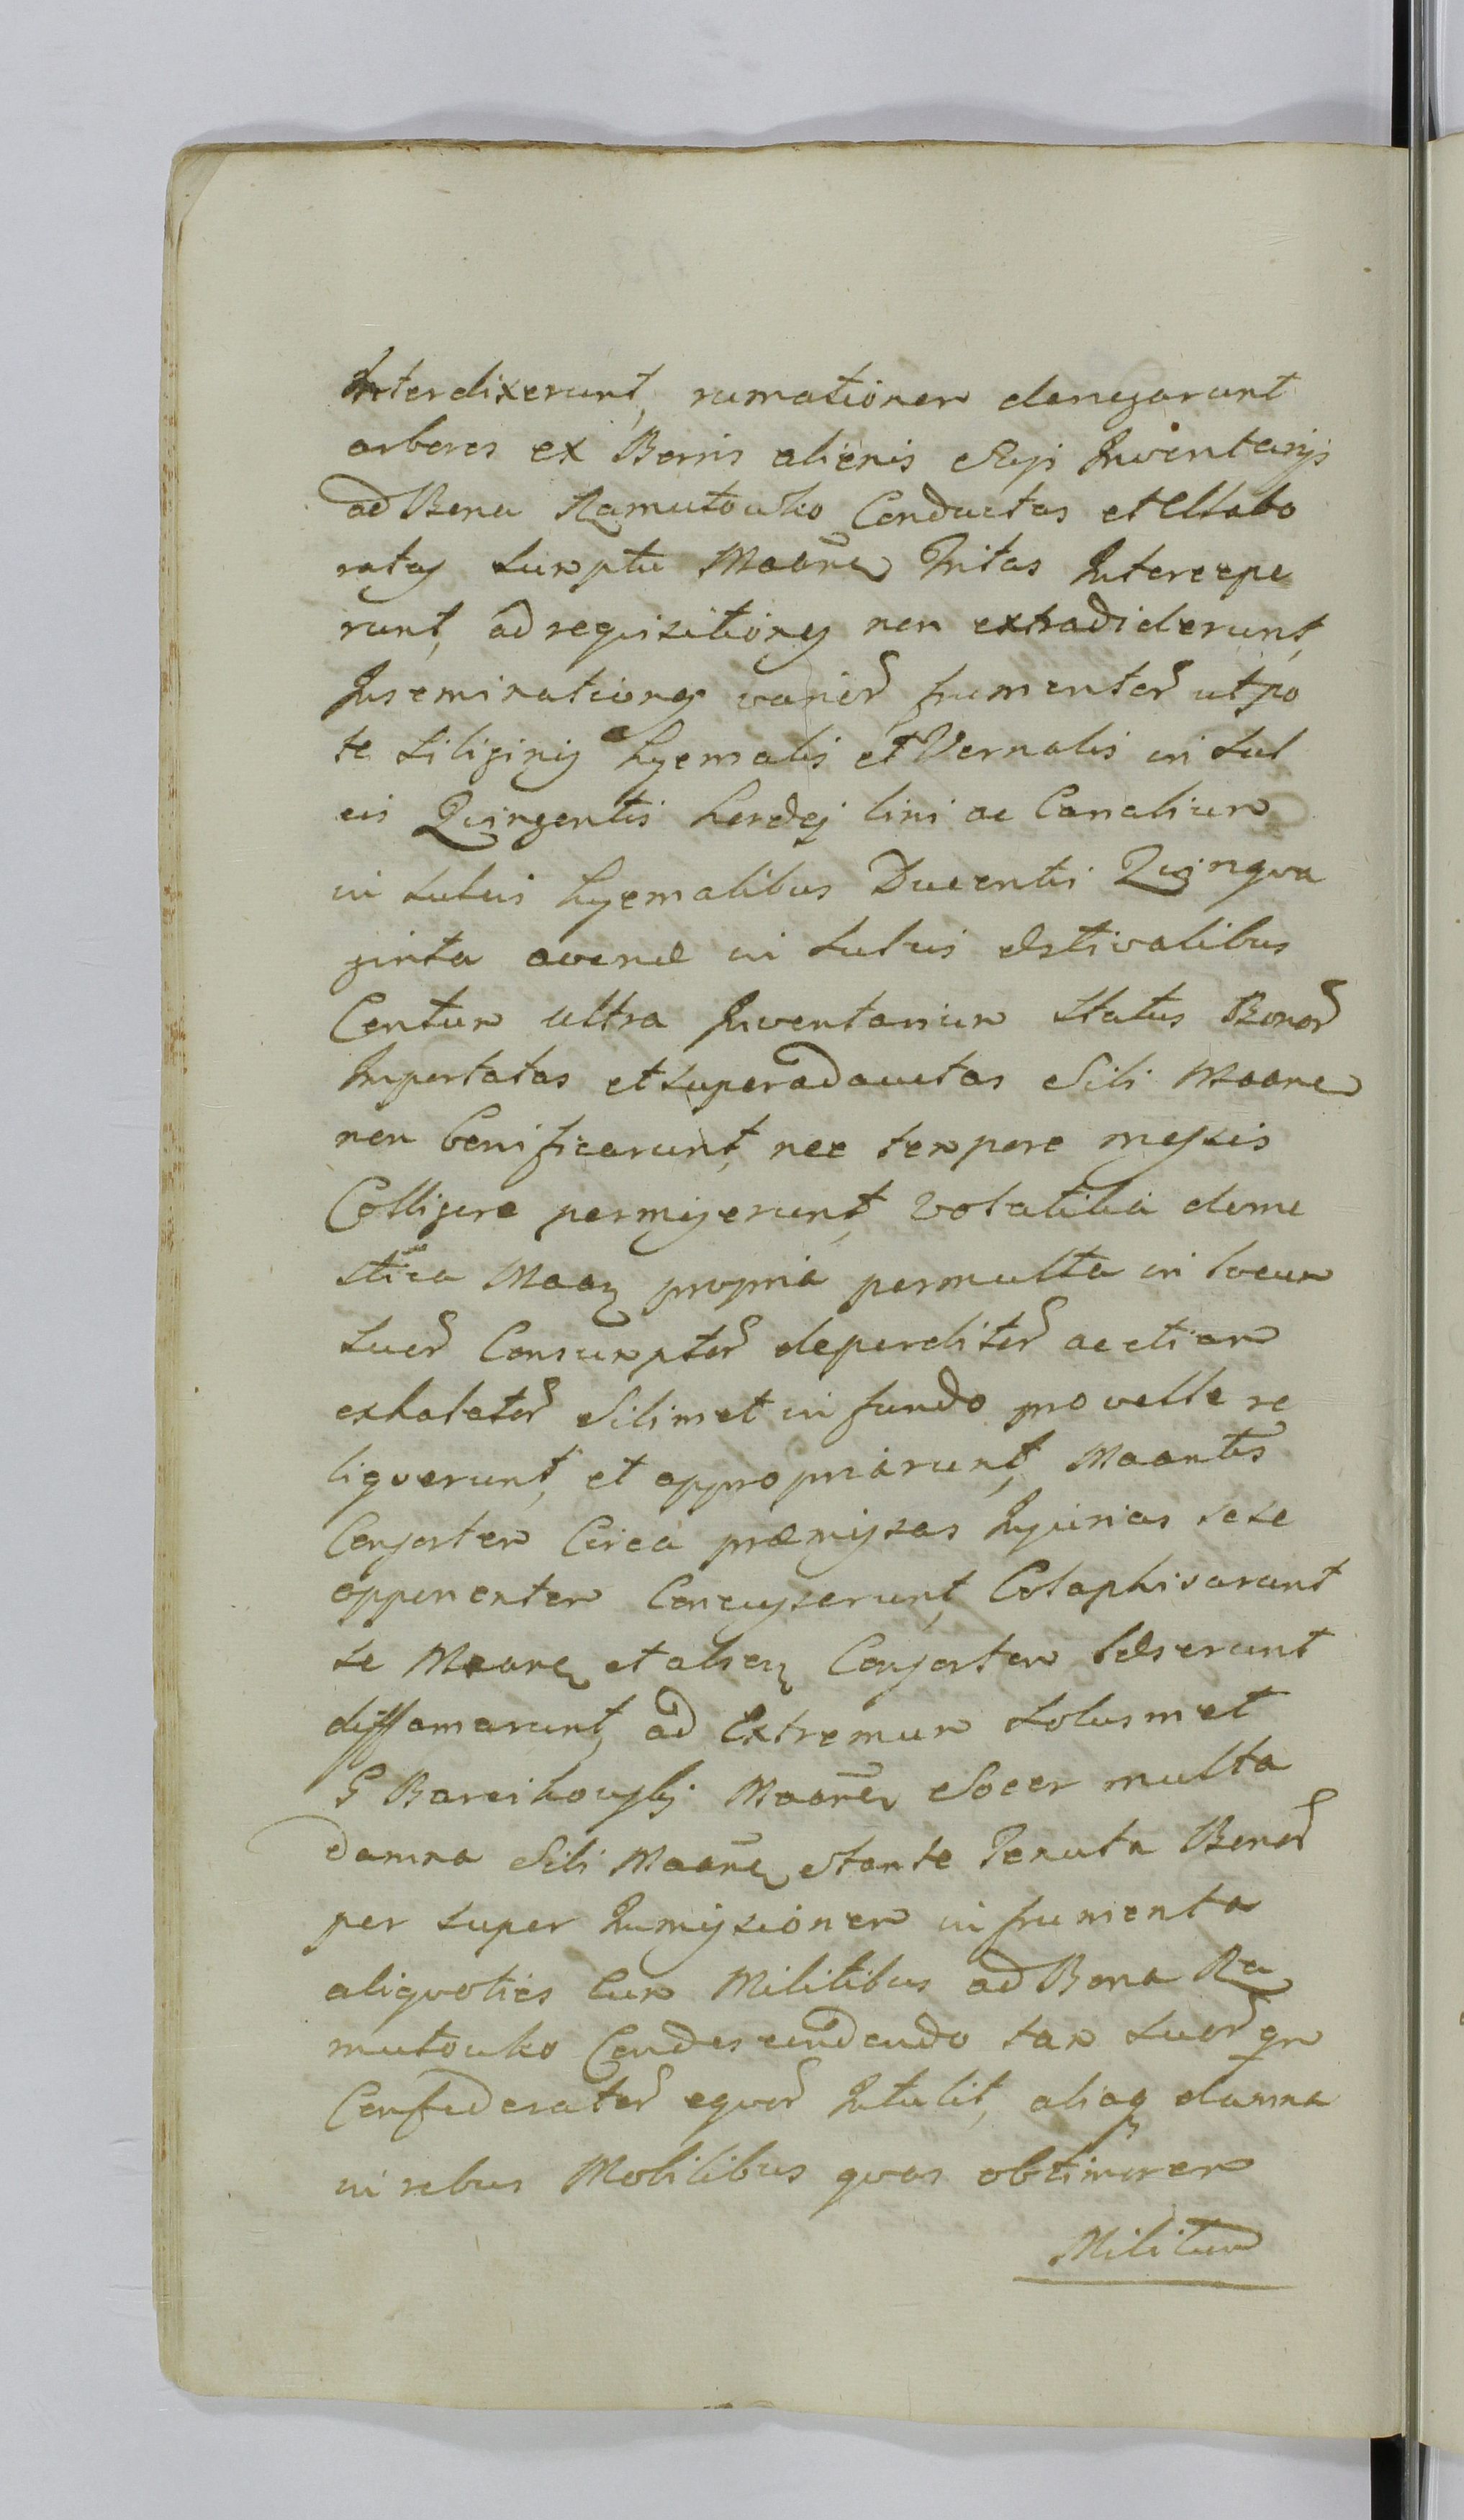 Interdixerunt, rumationem denegarunt
arbores ex Bonis alienis Inventarys
ad Bona Ramutowko Conductas et Elabo
ratas sumptu Maaris Intercepe
runt, ad requisitiones non extradiderunt,
Inseminationes varior frumentor utpo
te siliginis hyemalis et Vernalis in sul
cis Quingentis hordej lini ac Canalium
in sulcis hyemalibus Ducentis Quinqva
ginta avenæ in sulcis æstivalibus
Centum ultra Inventarium status Bonor
Importatas et superadauctas Sibi
non bonificarunt, nec tempore messis
Colligere permiserunt, volatilia dome
stica propria permulta in locum
suor Consumptor deperditor ac etiam
exhalator Sibimet in fundo pro velle re
liqverunt, et appropriarunt,
Consortem Circa præmissas Injurias sese
opponentem Concusserunt, Colaphisarunt
se et Consortem læserunt
diffamarunt, ad Extremum solusmet
G Socer multa
damna Sibi Stante Tenuta Bonor
per super Immissionem in frumenta
aliqvoties Cum Militibus ad Bona Ra
mutowko Condescendendo tam suor qm
Confæderator eqvor Intulit, aliaq damna
in rebus Mobilibus qvas
Militum